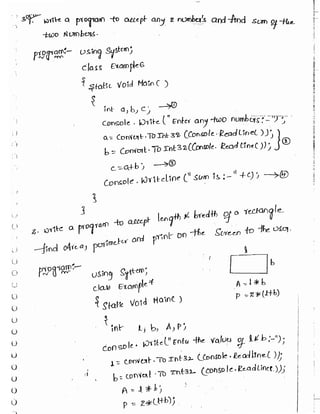 write a program to accept any 2 number's and find sum of the
two Numbers.
program:- using System;
class Example6
{ static void Main( )
{
int a, b, c; →①
Console.Write("Enter any two numbers:-");
a = Convert.ToInt32(Console.ReadLine());
b = Convert.ToInt32(Console.ReadLine()); ②
c = a+b; →③
Console.WriteLine("Sum is:-"+c); →④
}
}
2. write a program to accept length & bredth of a rectangle.
find of area, perimeter and print on the screen to the user.
l
b
program:- using System;
class Example7
A = l * b
{ static void Main( )
P = 2*(l+b)
{
int l, b, A, P;
Console.Write("Enter the values of l & b:-");
l = Convert.ToInt32(Console.ReadLine());
b = Convert.ToInt32(Console.ReadLine());
A = l * b;
P = 2*(l+b);